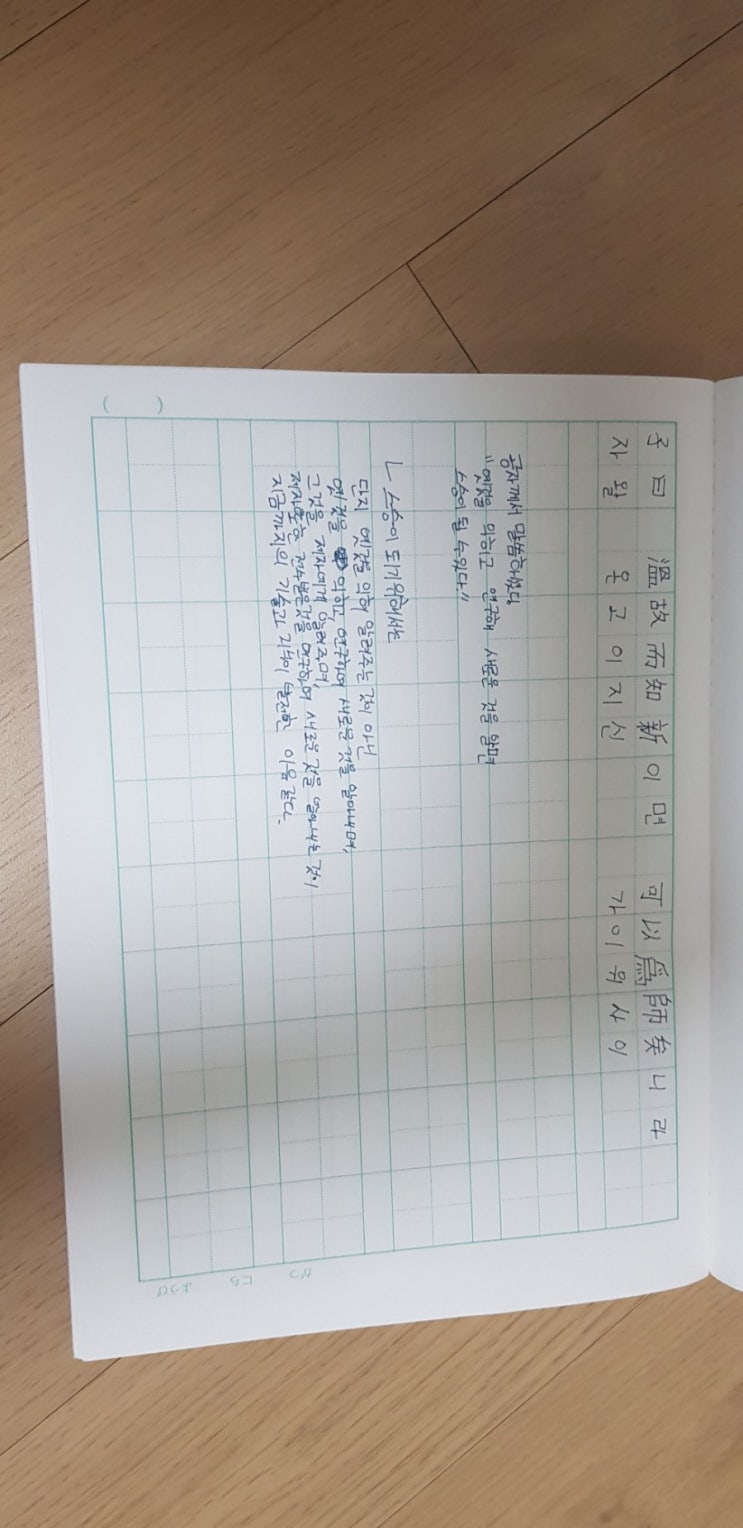 子曰 溫故而知新이면 可以爲師矣니라
자왈 온고이지신 가이위사의
공자께서 말씀하셨다
"옛것을 익히고 연구해 새로운 것을 알면
스승이 될 수 있다."
ㄴ 스승이 되기 위해서는
단지 옛것을 익혀 알려주는 것이 아닌
옛것을 익히고 연구하여 새로운 것을 알아내며,
그것을 제자에게 알려주며
제자 또한 전수받은 것을 연구하여 새로운 것을 알아내는 것이
지금까지의 기술과 지식이 발전한 이유같다.
( )
がつ
にち
ようび